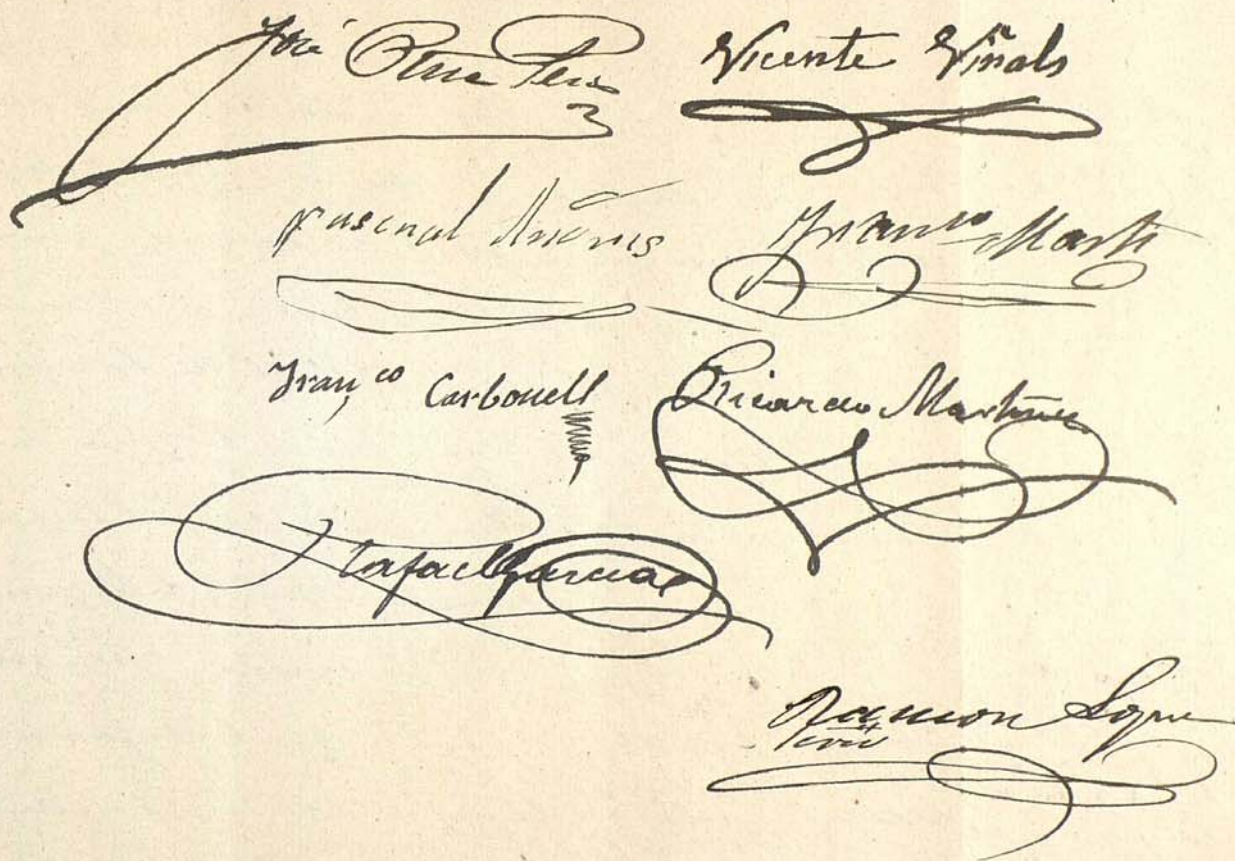 José Vicente Viñals
Pascual Franco Marti
Franco Carbonell Ricardo Martinez
Rafael Garcia
Ramon Lopez